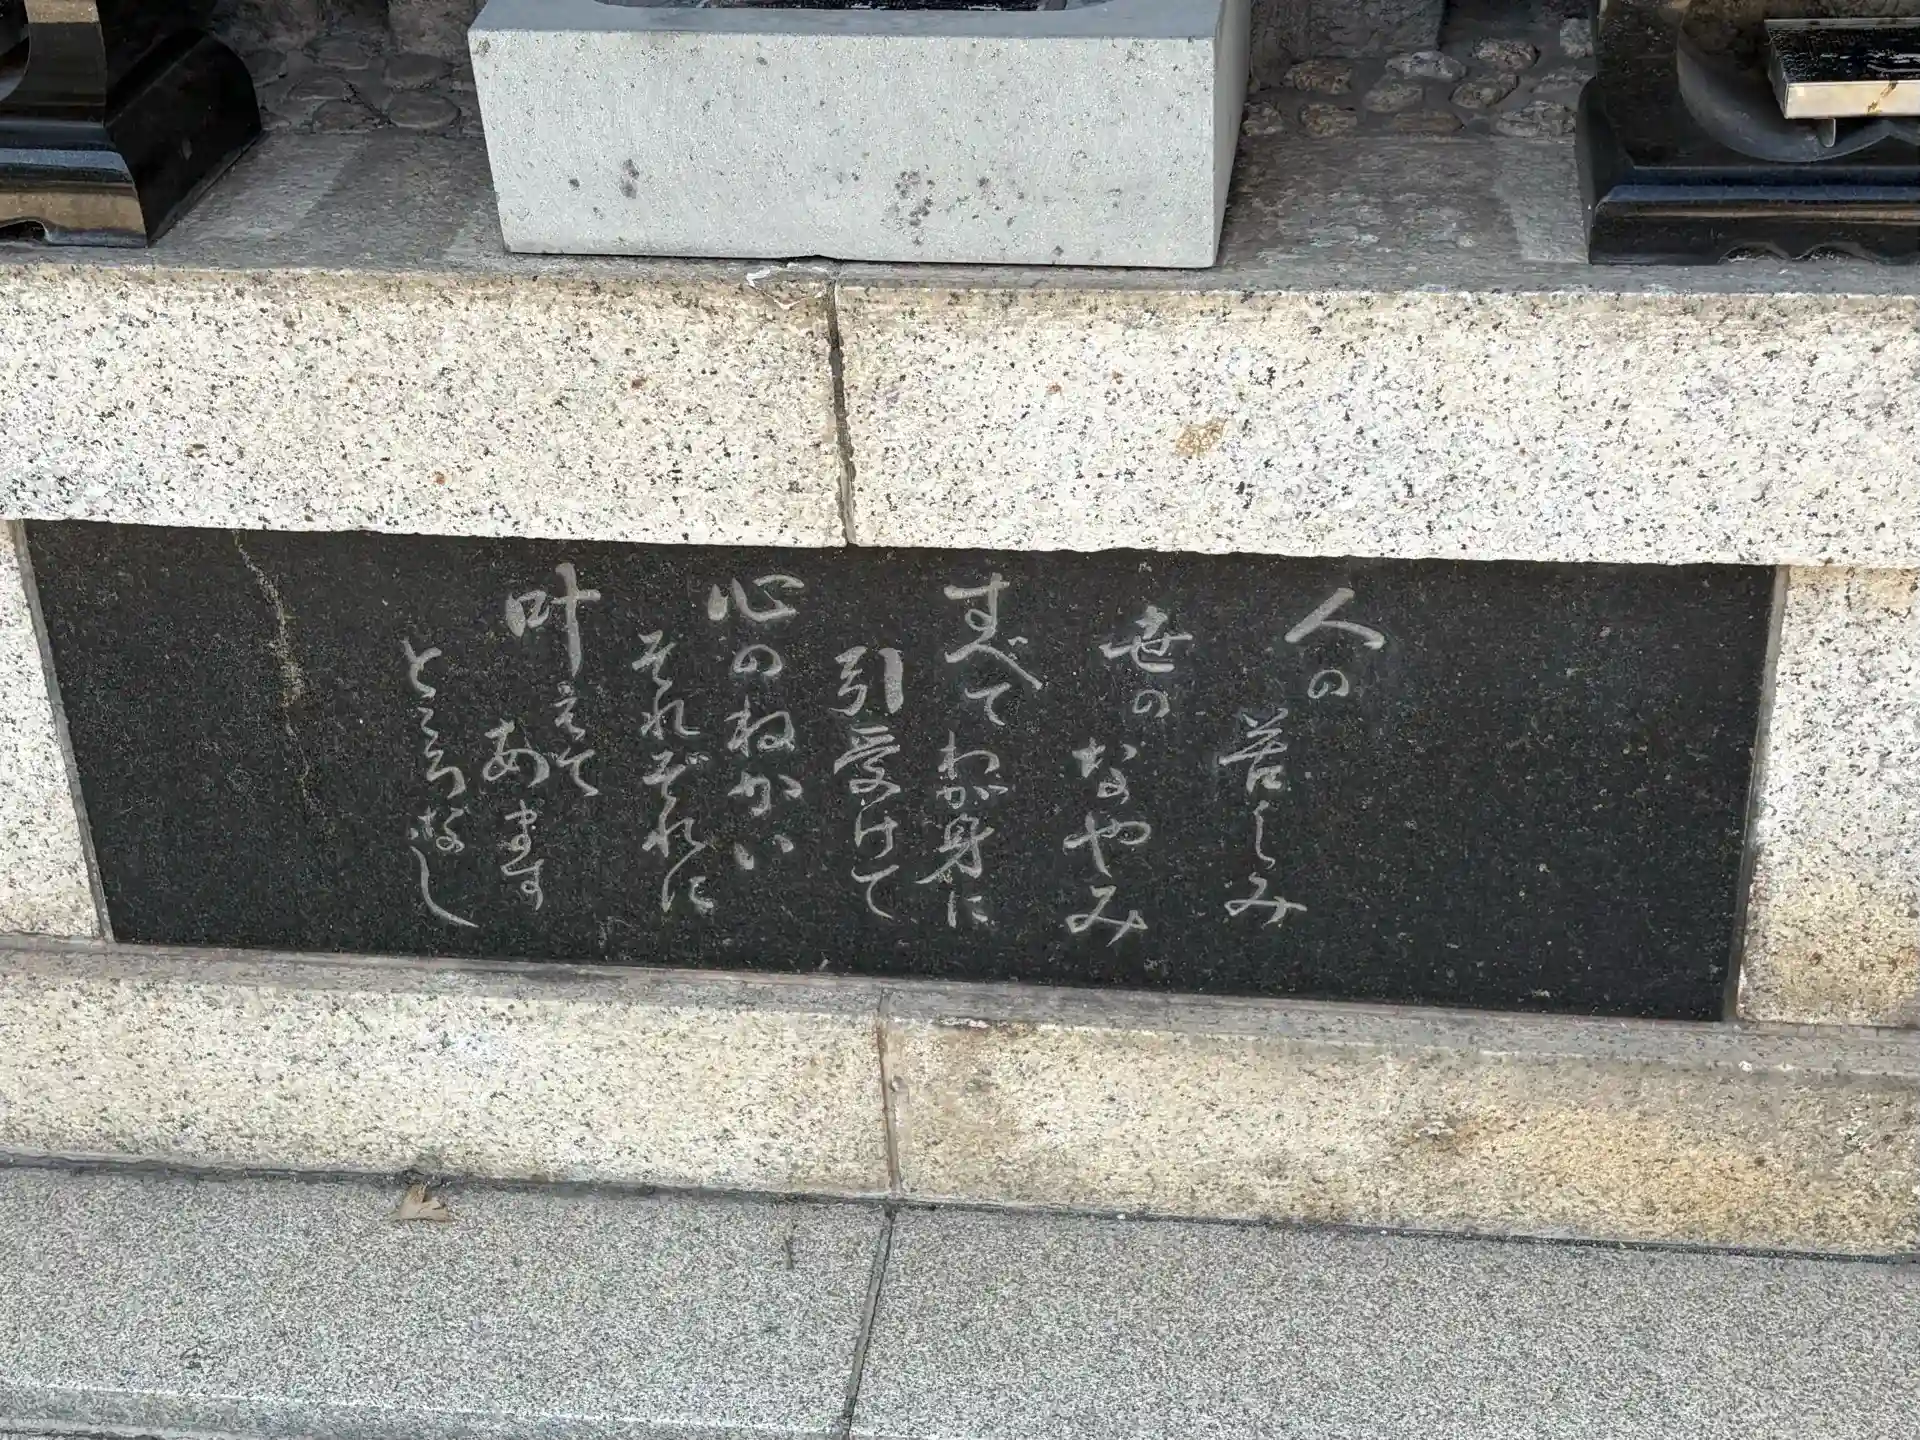 人の苦しみ
世のなやみ
すべてわが身に
引受けて
心のねがい
それぞれに
叶えて
あます
ところなし